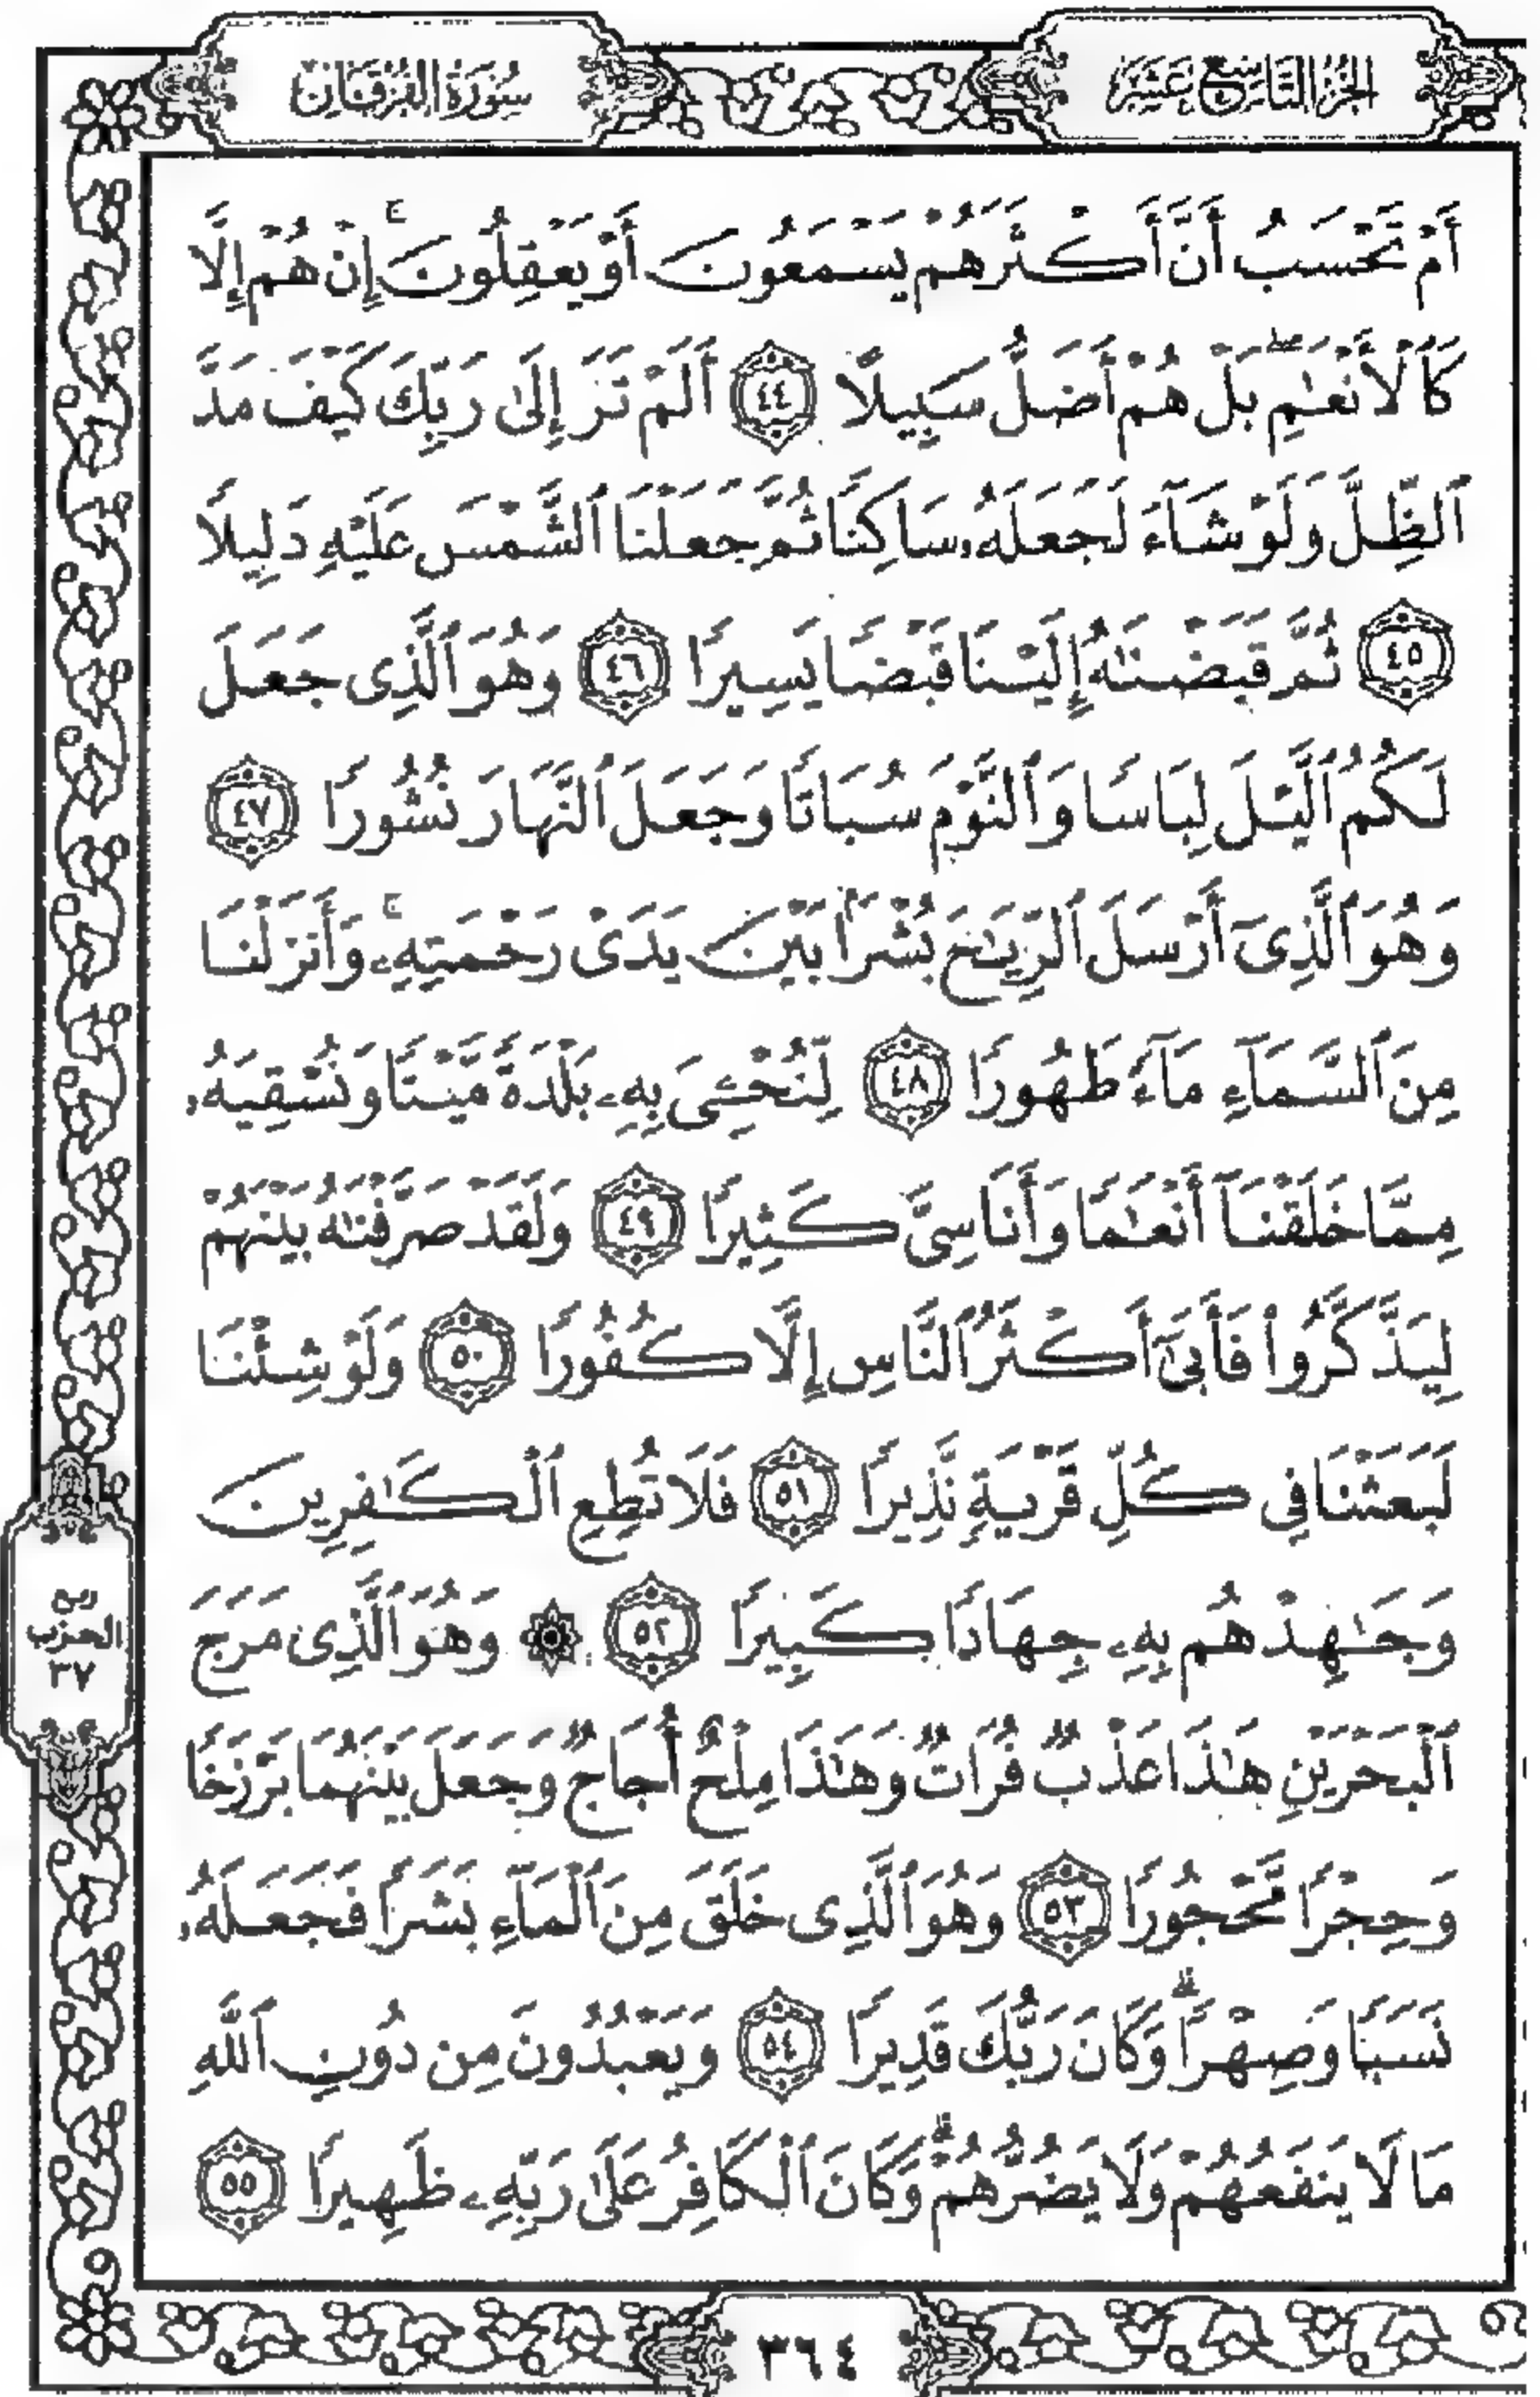 الجزء التاسع عشر
سورة الفرقان
أَمْ تَحْسَبُ أَنَّ أَكْثَرَهُمْ يَسْمَعُونَ أَوْ يَعْقِلُونَ ۚ إِنْ هُمْ إِلَّا
كَٱلْأَنْعَٰمِ ۖ بَلْ هُمْ أَضَلُّ سَبِيلًا ٤٤ أَلَمْ تَرَ إِلَىٰ رَبِّكَ كَيْفَ مَدَّ
ٱلظِّلَّ وَلَوْ شَآءَ لَجَعَلَهُۥ سَاكِنًا ثُمَّ جَعَلْنَا ٱلشَّمْسَ عَلَيْهِ دَلِيلًا
٤٥ ثُمَّ قَبَضْنَٰهُ إِلَيْنَا قَبْضًا يَسِيرًا ٤٦ وَهُوَ ٱلَّذِى جَعَلَ
لَكُمُ ٱلَّيْلَ لِبَاسًا وَٱلنَّوْمَ سُبَاتًا وَجَعَلَ ٱلنَّهَارَ نُشُورًا ٤٧
وَهُوَ ٱلَّذِىٓ أَرْسَلَ ٱلرِّيَٰحَ بُشْرًۢا بَيْنَ يَدَىْ رَحْمَتِهِۦ ۚ وَأَنزَلْنَا
مِنَ ٱلسَّمَآءِ مَآءً طَهُورًا ٤٨ لِّنُحْـِۧىَ بِهِۦ بَلْدَةً مَّيْتًا وَنُسْقِيَهُۥ
مِمَّا خَلَقْنَآ أَنْعَٰمًا وَأَنَاسِىَّ كَثِيرًا ٤٩ وَلَقَدْ صَرَّفْنَٰهُ بَيْنَهُمْ
لِيَذَّكَّرُوا۟ فَأَبَىٰٓ أَكْثَرُ ٱلنَّاسِ إِلَّا كُفُورًا ٥٠ وَلَوْ شِئْنَا
لَبَعَثْنَا فِى كُلِّ قَرْيَةٍ نَّذِيرًا ٥١ فَلَا تُطِعِ ٱلْكَٰفِرِينَ
وَجَٰهِدْهُم بِهِۦ جِهَادًا كَبِيرًا ٥٢ ۞ وَهُوَ ٱلَّذِى مَرَجَ
ٱلْبَحْرَيْنِ هَٰذَا عَذْبٌ فُرَاتٌ وَهَٰذَا مِلْحٌ أُجَاجٌ وَجَعَلَ بَيْنَهُمَا بَرْزَخًا
وَحِجْرًا مَّحْجُورًا ٥٣ وَهُوَ ٱلَّذِى خَلَقَ مِنَ ٱلْمَآءِ بَشَرًا فَجَعَلَهُۥ
نَسَبًا وَصِهْرًا ۗ وَكَانَ رَبُّكَ قَدِيرًا ٥٤ وَيَعْبُدُونَ مِن دُونِ ٱللَّهِ
مَا لَا يَنفَعُهُمْ وَلَا يَضُرُّهُمْ ۗ وَكَانَ ٱلْكَافِرُ عَلَىٰ رَبِّهِۦ ظَهِيرًا ٥٥
ربع
الحزب
٣٧
٣٦٤